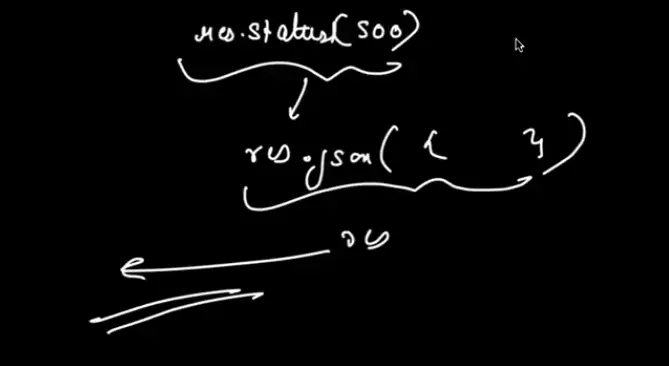 res.status(500)
res.json({ })
res